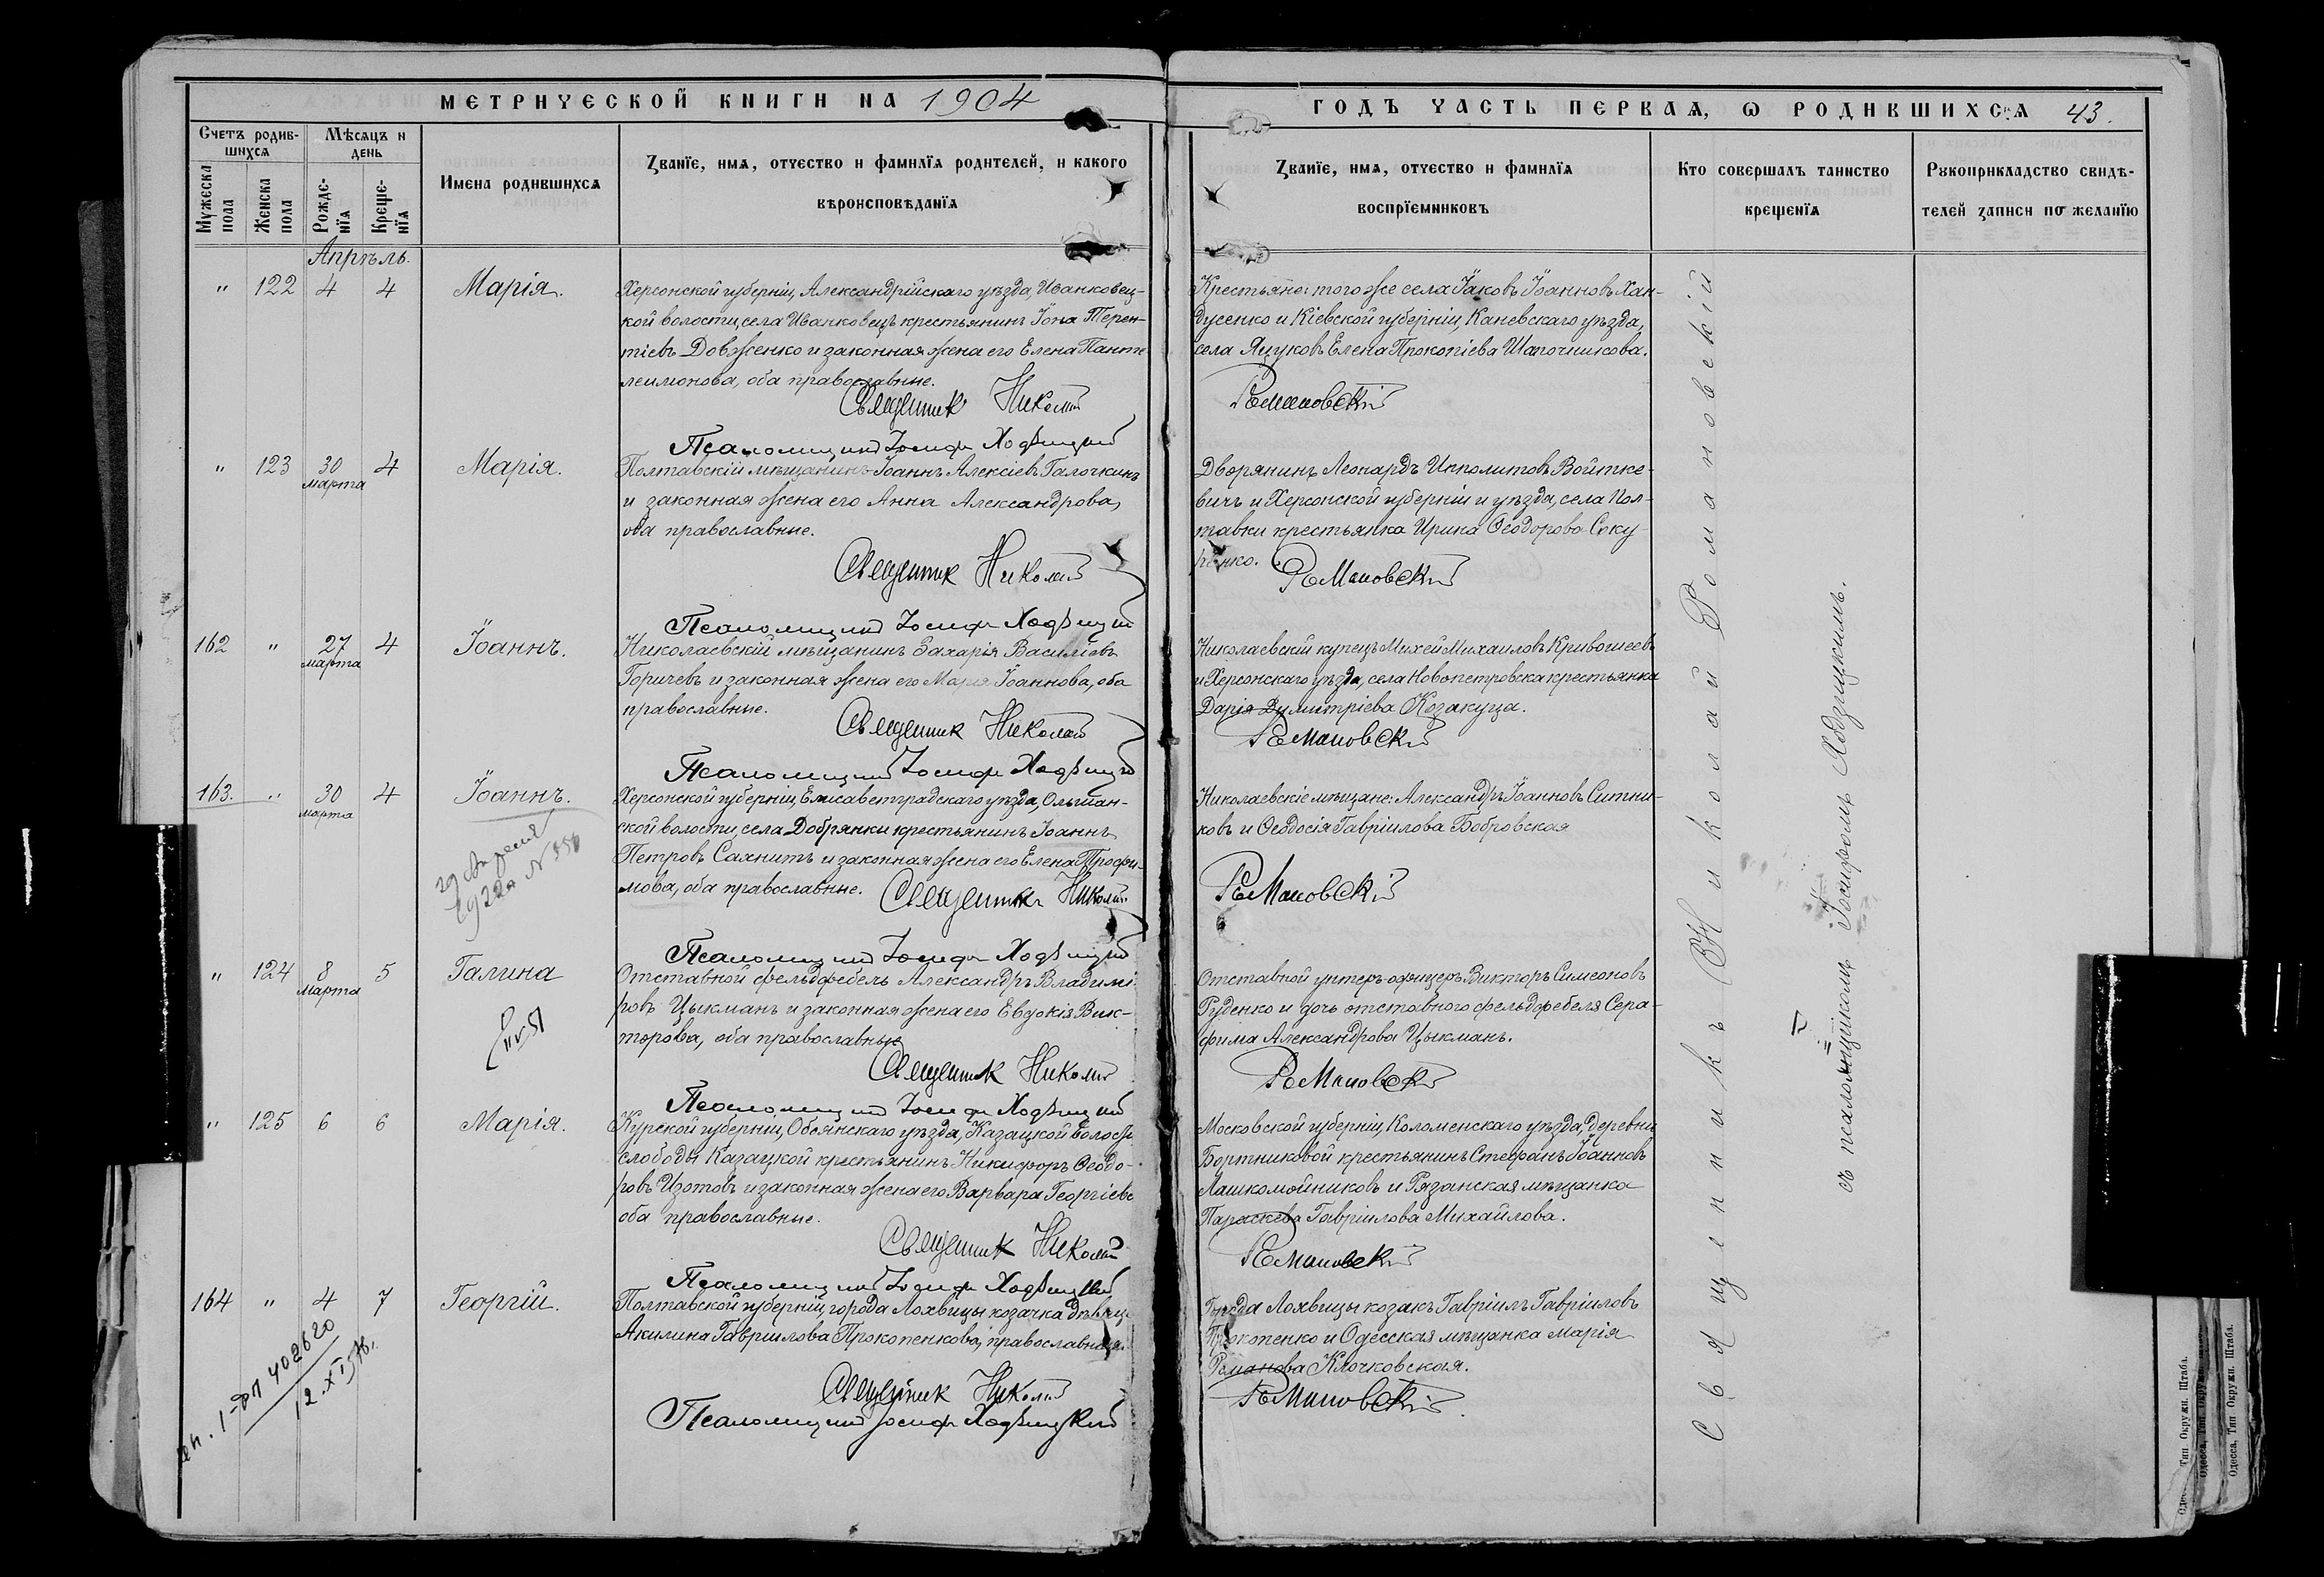 МЕТРИЧЕСКОЙ КНИГИ НА 1904
Счетъ родив-
шихся
Мѣсяцъ и
день
Мужеска
пола
Женска
пола
Рожде-
нїя
Креще-
нїя
Имена родившихся
Званїе, имя, отчество и фамилїя родителей, и какого
вѣроисповѣданїя
Апрѣль.
" 122 4 4 Марія.
Херсонской губерніи, Александрійскаго уѣзда, Иванковец-
кой волости, села Иванковецъ крестьянинъ Іона Терен-
тіевъ Довженко и законная жена его Елена Панте
леимонова, оба православные.
Священник Николай
Псаломщикъ Іосифъ Ходзицкий
" 123 30 марта 4 Марія.
Полтавскій мѣщанинъ Іоаннъ Алексіевъ Галочкинъ
и законная жена его Анна Александрова,
оба православные.
Священник Николай
Псаломщикъ Іосифъ Ходзицкий
162 " 27 марта 4 Іоаннъ.
Николаевскій мѣщанинъ Захарія Василіевъ
Горичевъ и законная жена его Марія Іоаннова, оба
православные.
Священник Николай
Псаломщикъ Іосифъ Ходзицкий
163. " 30 марта 4 Іоаннъ.
Херсонской губерніи, Елисаветградскаго уѣзда, Ольшан-
ской волости, села Добрянки крестьянинъ Іоаннъ
Петровъ Саянитъ и законная жена его Елена Трофи-
мова, оба православные.
Священникъ Николай
Псаломщикъ Іосифъ Ходзицкий
" 124 8 марта 5 Галина
Отставной фельдфебель Александръ Владимі
ровъ Цыкманъ и законная жена его Евдокія Вик-
торова, оба православные
Священник Николай
Псаломщикъ Іосифъ Ходзицкий
" 125 6 6 Марія.
Курской губерніи, Обоянскаго уѣзда, Казацкой волости
слободы Казацкой крестьянинъ Никифоръ Ѳеодо-
ровъ Изотовъ и законная жена его Варвара Георгіева
оба православные.
Священник Николай
Псаломщикъ Іосифъ Ходзицкий
164 " 4 7 Георгій.
Полтавской губерніи, города Лохвицы козачка дѣвица
Акилина Гавріилова Прокопенкова, православная.
Священник Николай
Псаломщикъ Іосифъ Ходзицкий
402620
12.XI
ГОДЪ ЧАСТЬ ПЕРВАЯ, Ѡ РОДИВШИХСЯ 43.
Званїе, имя, отчество и фамилїя
воспрїемниковъ
Кто совершалъ таинство
крещенїя
Рукоприкладство свидѣ-
телей записи по желанїю
Крестьяне: того же села Іаковъ Іоанновъ Хан-
дусенко и Кіевской губерніи, Каневскаго уѣзда,
села Яцуковъ Елена Прокопіева Шапочникова.
Романовскій
Дворянинъ Леонардъ Ипполитовъ Войтке-
вичъ и Херсонской губерніи и уѣзда, села Пол-
тавки крестьянка Ирина Ѳеодорова Соку-
ренко.
Романовскій
Николаевскій купецъ Михей Михаиловъ Кривошеевъ
и Херсонскаго уѣзда, села Новопетровска крестьянка
Дарія Димитріева Козакуца.
Романовскій
Николаевскіе мѣщане: Александръ Іоанновъ Ситни-
ковъ и Ѳеодосія Гавріилова Бобровская
Романовскій
Отставной унтеръ-офицеръ Викторъ Симеоновъ
Руденко и дочь отставного фельдфебеля Сера-
фима Александрова Цыкманъ.
Романовскій
Московской губерніи, Коломенскаго уѣзда, деревни
Бортниковой крестьянинъ Стефанъ Іоанновъ
Лашкомойниковъ и Рязанская мѣщанка
Параскева Гавріилова Михайлова.
Романовскій
Города Лохвицы козакъ Гавріилъ Гавріиловъ
Прокопенко и Одесская мѣщанка Марія
Романова Клочковская.
Романовскій
Священникъ Николай Романовскій
съ псаломщикомъ Іосифомъ Ходзицкимъ.
Тип Окружн. Штаба.
Одесса, Тип Окружн. Штаба.